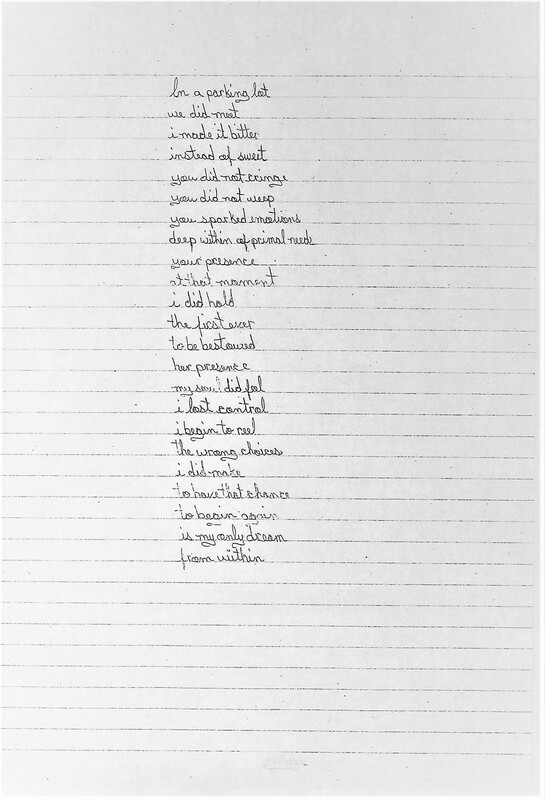 In a parking lot
we did meet
i made it bitter
instead of sweet
you did not cringe
you did not weep
you sparked emotions
deep within of primal need
your presence
at that moment
i did hold
the first ever
to be bestoured
her presence
my soul did feel
i lost control
i begin to reel
the wrong choices
i did make
to have that chance
to begin again
is my only dream
from within